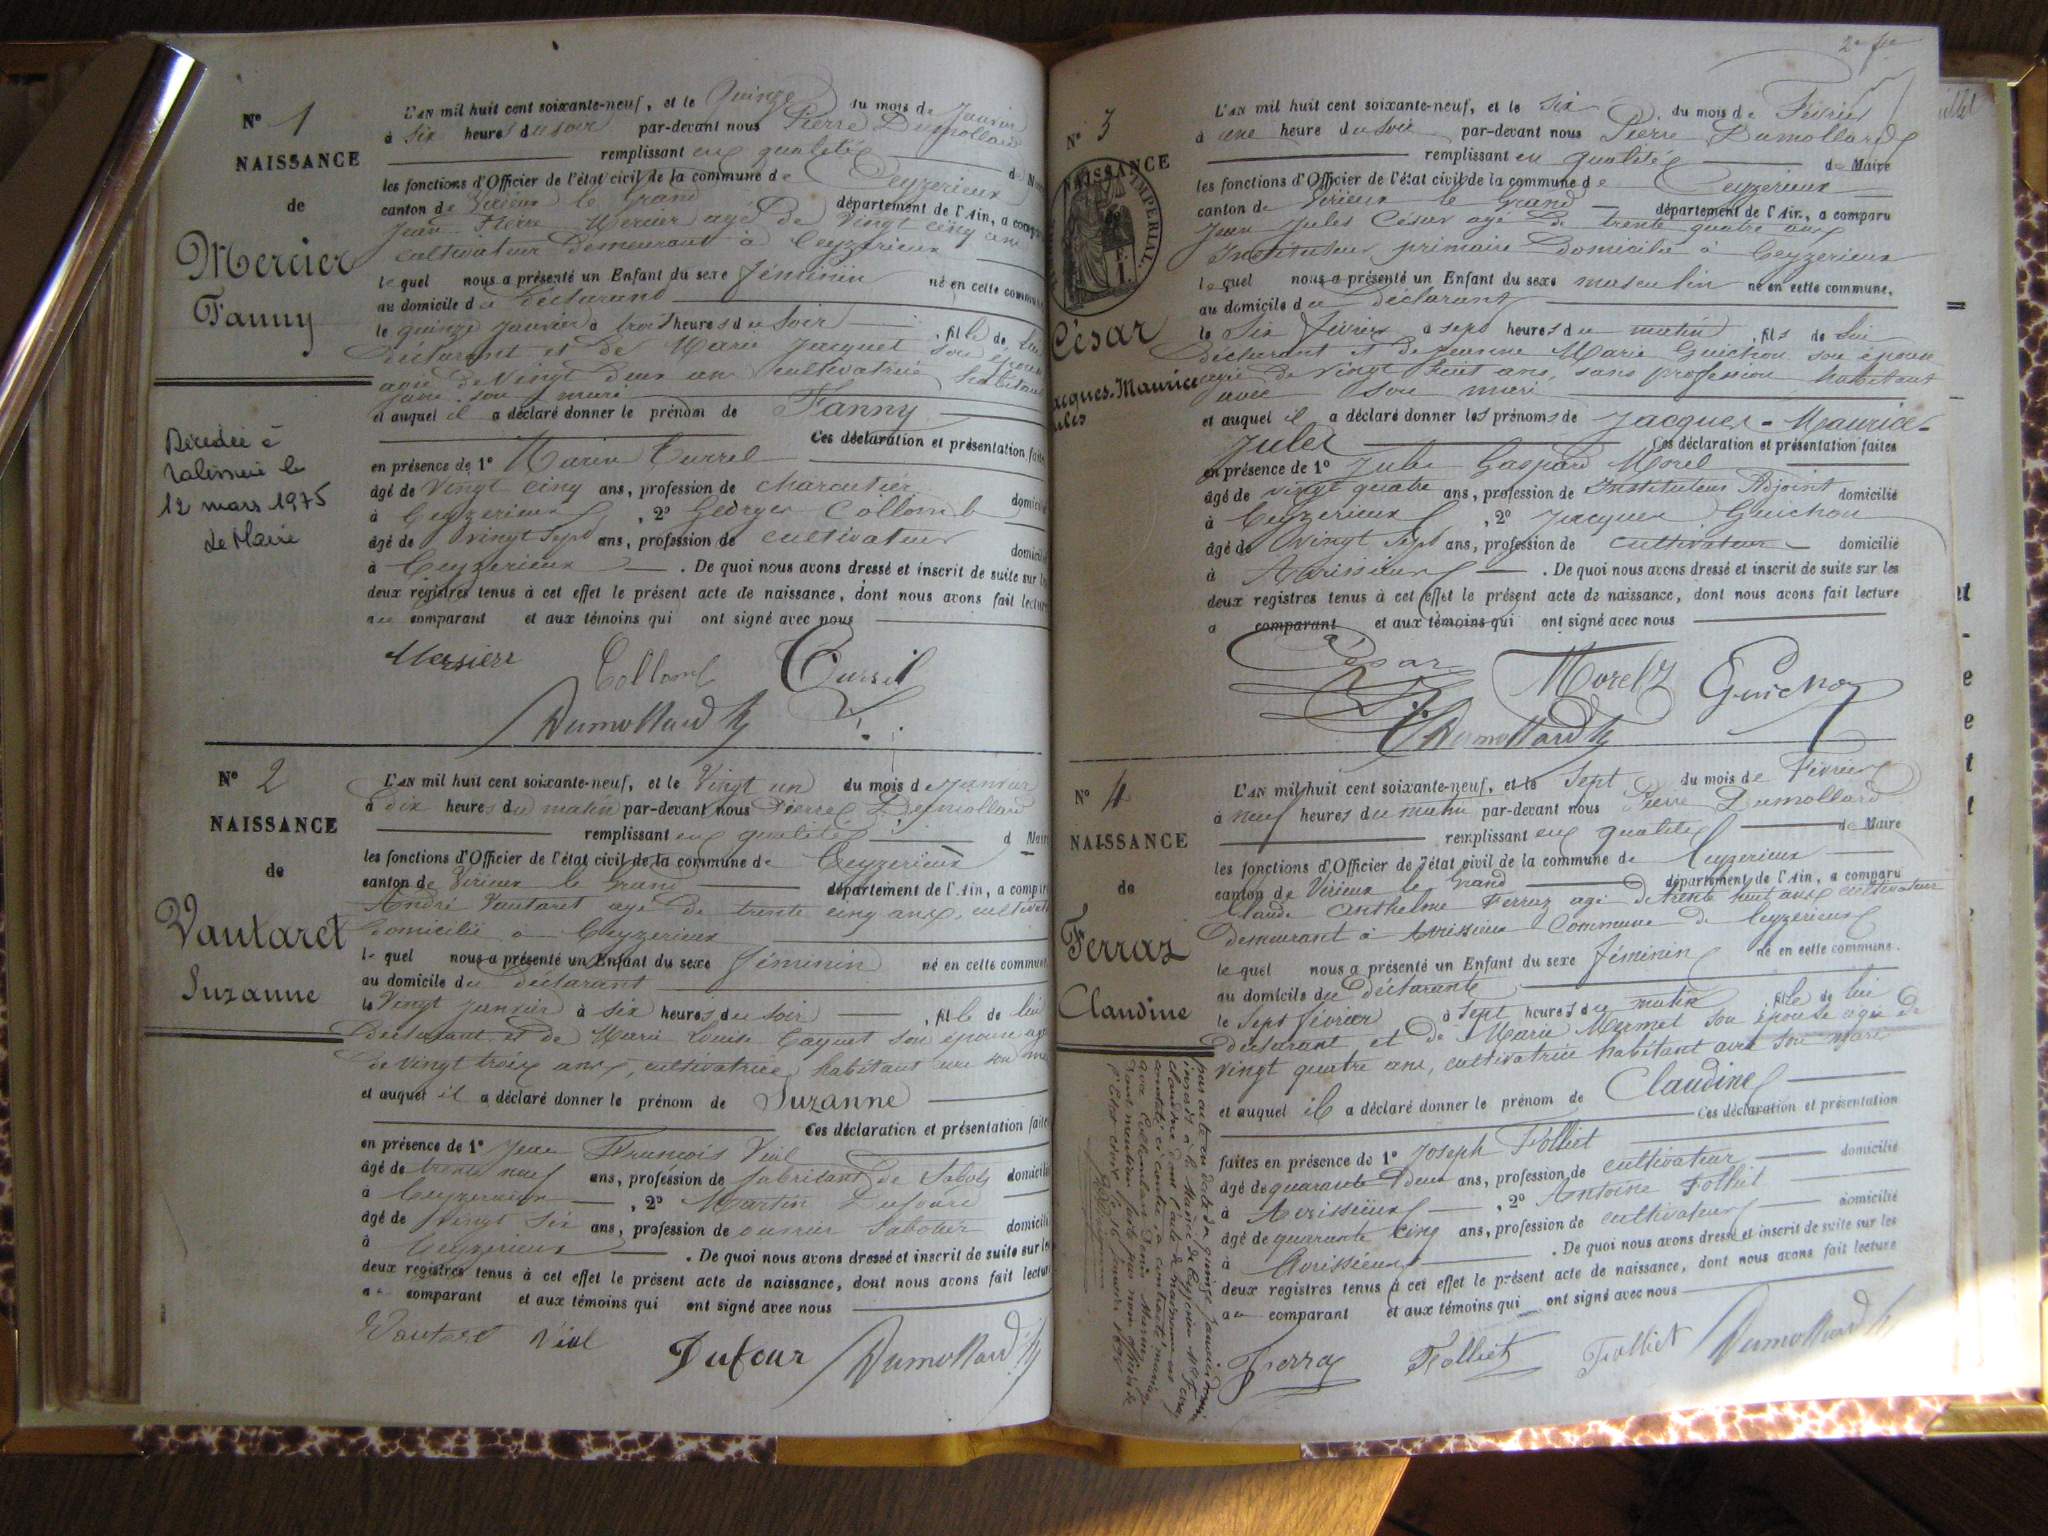 N° 1
NAISSANCE
de
Mercier
Fanny
Décédée à
le
12 mars 1975
Le Maire
L'AN mil huit cent soixante-neuf, et le Quinze du mois de Janvier
à six heures du soir par-devant nous Pierre Dumollard
remplissant en qualité d Maire
les fonctions d'Officier de l'état civil de la commune de Ceyzerieux
canton de Virieux le Grand département de l'Ain, a comparu
Jean Pierre Mercier agé de vingt cinq ans
cultivateur demeurant à Ceyzerieux
lequel nous a présenté un Enfant du sexe féminin né en cette commune
au domicile du déclarant
le quinze janvier à trois heures du soir , fille de lui
déclarant et de Marie Jacquet son épouse
agée de vingt deux ans cultivatrice habitant
avec son mari
et auquel il a déclaré donner le prénom de Fanny
Ces déclaration et présentation faites
en présence de 1° Marin Currel
âgé de vingt cinq ans, profession de charcutier domicilié
à Ceyzerieux , 2° Georges Collomb
âgé de vingt sept ans, profession de cultivateur domicilié
à Ceyzerieux . De quoi nous avons dressé et inscrit de suite sur les
deux registres tenus à cet effet le présent acte de naissance, dont nous avons fait lecture
au comparant et aux témoins qui ont signé avec nous
Mersierr Collomb
Dumollard
N° 2
NAISSANCE
de
Vautaret
Suzanne
L'AN mil huit cent soixante-neuf, et le vingt un du mois de janvier
à dix heures du matin par-devant nous Pierre Dumollard
remplissant en qualité d Maire
les fonctions d'Officier de l'état civil de la commune de Ceyzerieux
canton de Virieux le Grand département de l'Ain, a comparu
André Vautaret agé de trente cinq ans, cultivateur
domicilié à Ceyzerieux
lequel nous a présenté un Enfant du sexe féminin né en cette commune
au domicile du déclarant
le vingt janvier à six heures du soir , fille de lui
déclarant et de Marie Louise son épouse agée
de vingt trois ans, cultivatrice habitant avec son mari
et auquel il a déclaré donner le prénom de Suzanne
Ces déclaration et présentation faites
en présence de 1° Jean François Vial
âgé de trente neuf ans, profession de fabricant de Sabots domicilié
à Ceyzerieux , 2° Martin Dufour
âgé de vingt six ans, profession de ouvrier Sabotier domicilié
à Ceyzerieux . De quoi nous avons dressé et inscrit de suite sur les
deux registres tenus à cet effet le présent acte de naissance, dont nous avons fait lecture
au comparant et aux témoins qui ont signé avec nous
Vautaret Vial Dufour Dumollard
N° 3
NAISSANCE
IMPERIAL
César
Jacques-Maurice
Jules
L'AN mil huit cent soixante-neuf, et le six du mois de Février
à une heure du soir par-devant nous Pierre Dumollard
remplissant en qualité de Maire
les fonctions d'Officier de l'état civil de la commune de Ceyzerieux
canton de Virieux le Grand département de l'Ain, a comparu
Jean Jules César agé de trente quatre ans
Instituteur primaire domicilié à Ceyzerieux
lequel nous a présenté un Enfant du sexe masculin né en cette commune.
au domicile du déclarant
le six février à sept heures du matin , fils de lui
déclarant et de Jeanne Marie Guichon son épouse
agée de vingt huit ans, sans profession habitant
avec son mari
et auquel il a déclaré donner les prénoms de Jacques-Maurice-
Jules Ces déclaration et présentation faites
en présence de 1° Jules Gaspard Morel
âgé de vingt quatre ans, profession de Instituteur Adjoint domicilié
à Ceyzerieux , 2° Jacques Guichon
âgé de vingt sept ans, profession de cultivateur domicilié
à Avrissieux . De quoi nous avons dressé et inscrit de suite sur les
deux registres tenus à cet effet le présent acte de naissance, dont nous avons fait lecture
a comparant et aux témoins qui ont signé avec nous
César Morel Guichon
Dumollard
N° 4
NAISSANCE
de
Ferraz
Claudine
L'AN mil huit cent soixante-neuf, et le sept du mois de Février
à neuf heures du matin par-devant nous Pierre Dumollard
remplissant en qualité de Maire
les fonctions d'Officier de l'état civil de la commune de Ceyzerieux
canton de Virieux le Grand département de l'Ain, a comparu
Claude Anthelme Ferraz agé de trente huit ans cultivateur
demeurant à Avrissieux Commune de Ceyzerieux
lequel nous a présenté un Enfant du sexe féminin né en cette commune.
au domicile du déclarant
le sept février à sept heures du matin , fille de lui
déclarant et de Marie Mermet son épouse agée de
vingt quatre ans, cultivatrice habitant avec son mari
et auquel il a déclaré donner le prénom de Claudine
Ces déclaration et présentation
faites en présence de 1° Joseph Folliet
âgé de quarante deux ans, profession de cultivateur domicilié
à Avrissieux , 2° Antoine Folliet
âgé de quarante cinq ans, profession de cultivateur domicilié
à Avrissieux . De quoi nous avons dressé et inscrit de suite sur les
deux registres tenus à cet effet le présent acte de naissance, dont nous avons fait lecture
au comparant et aux témoins qui ont signé avec nous
Ferraz Folliet Folliet Dumollard